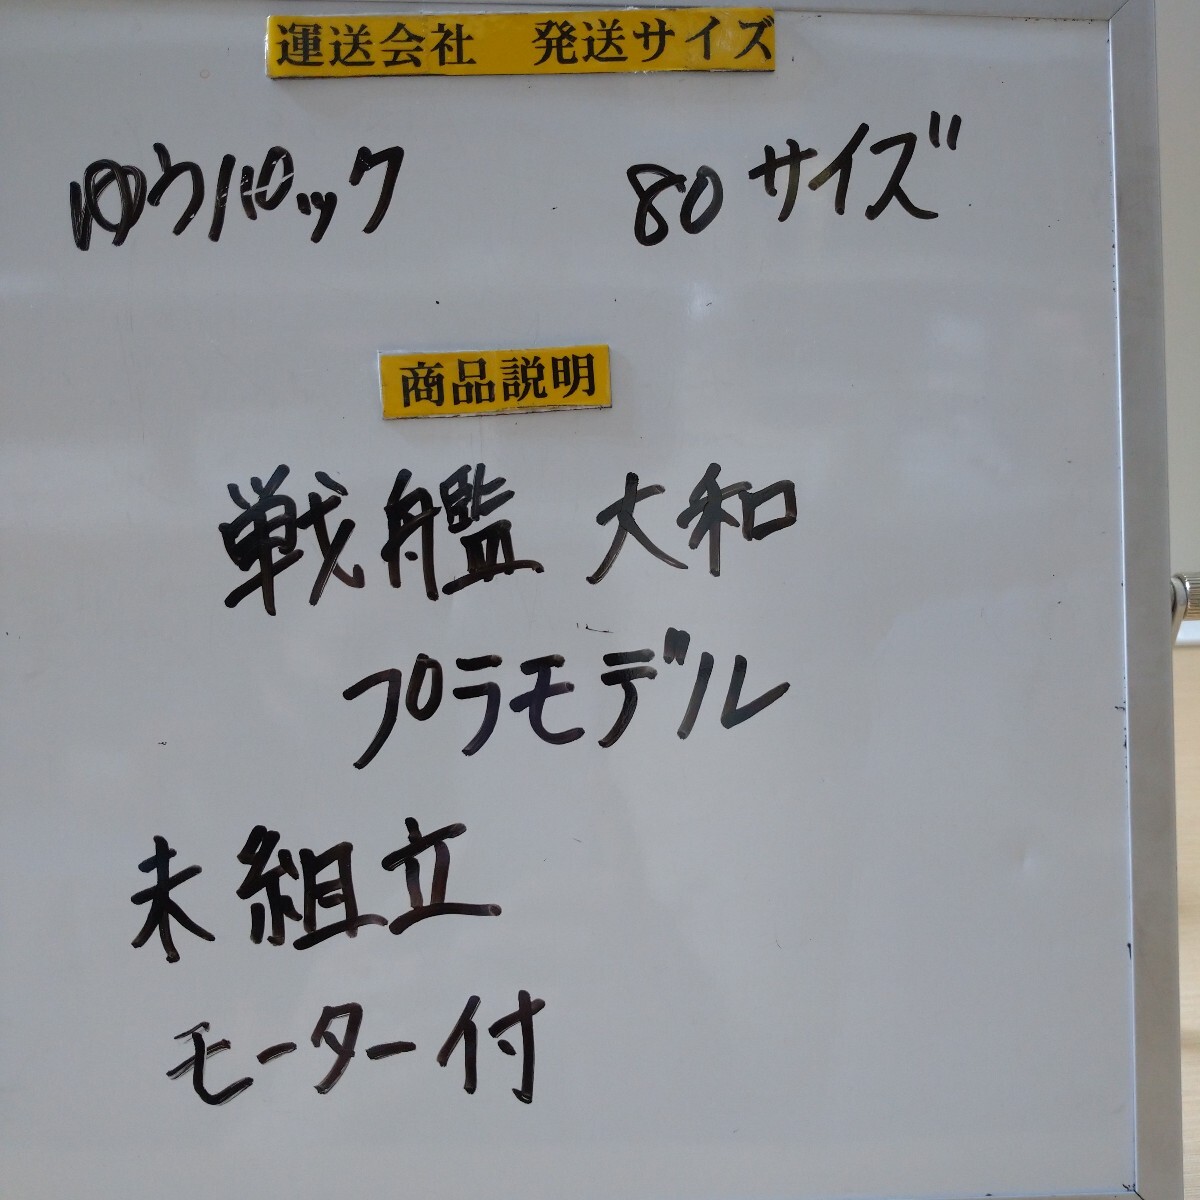 運送会社 発送サイズ
ゆうパック 80サイズ
商品説明
戦艦 大和
プラモデル
未組立
モーター付